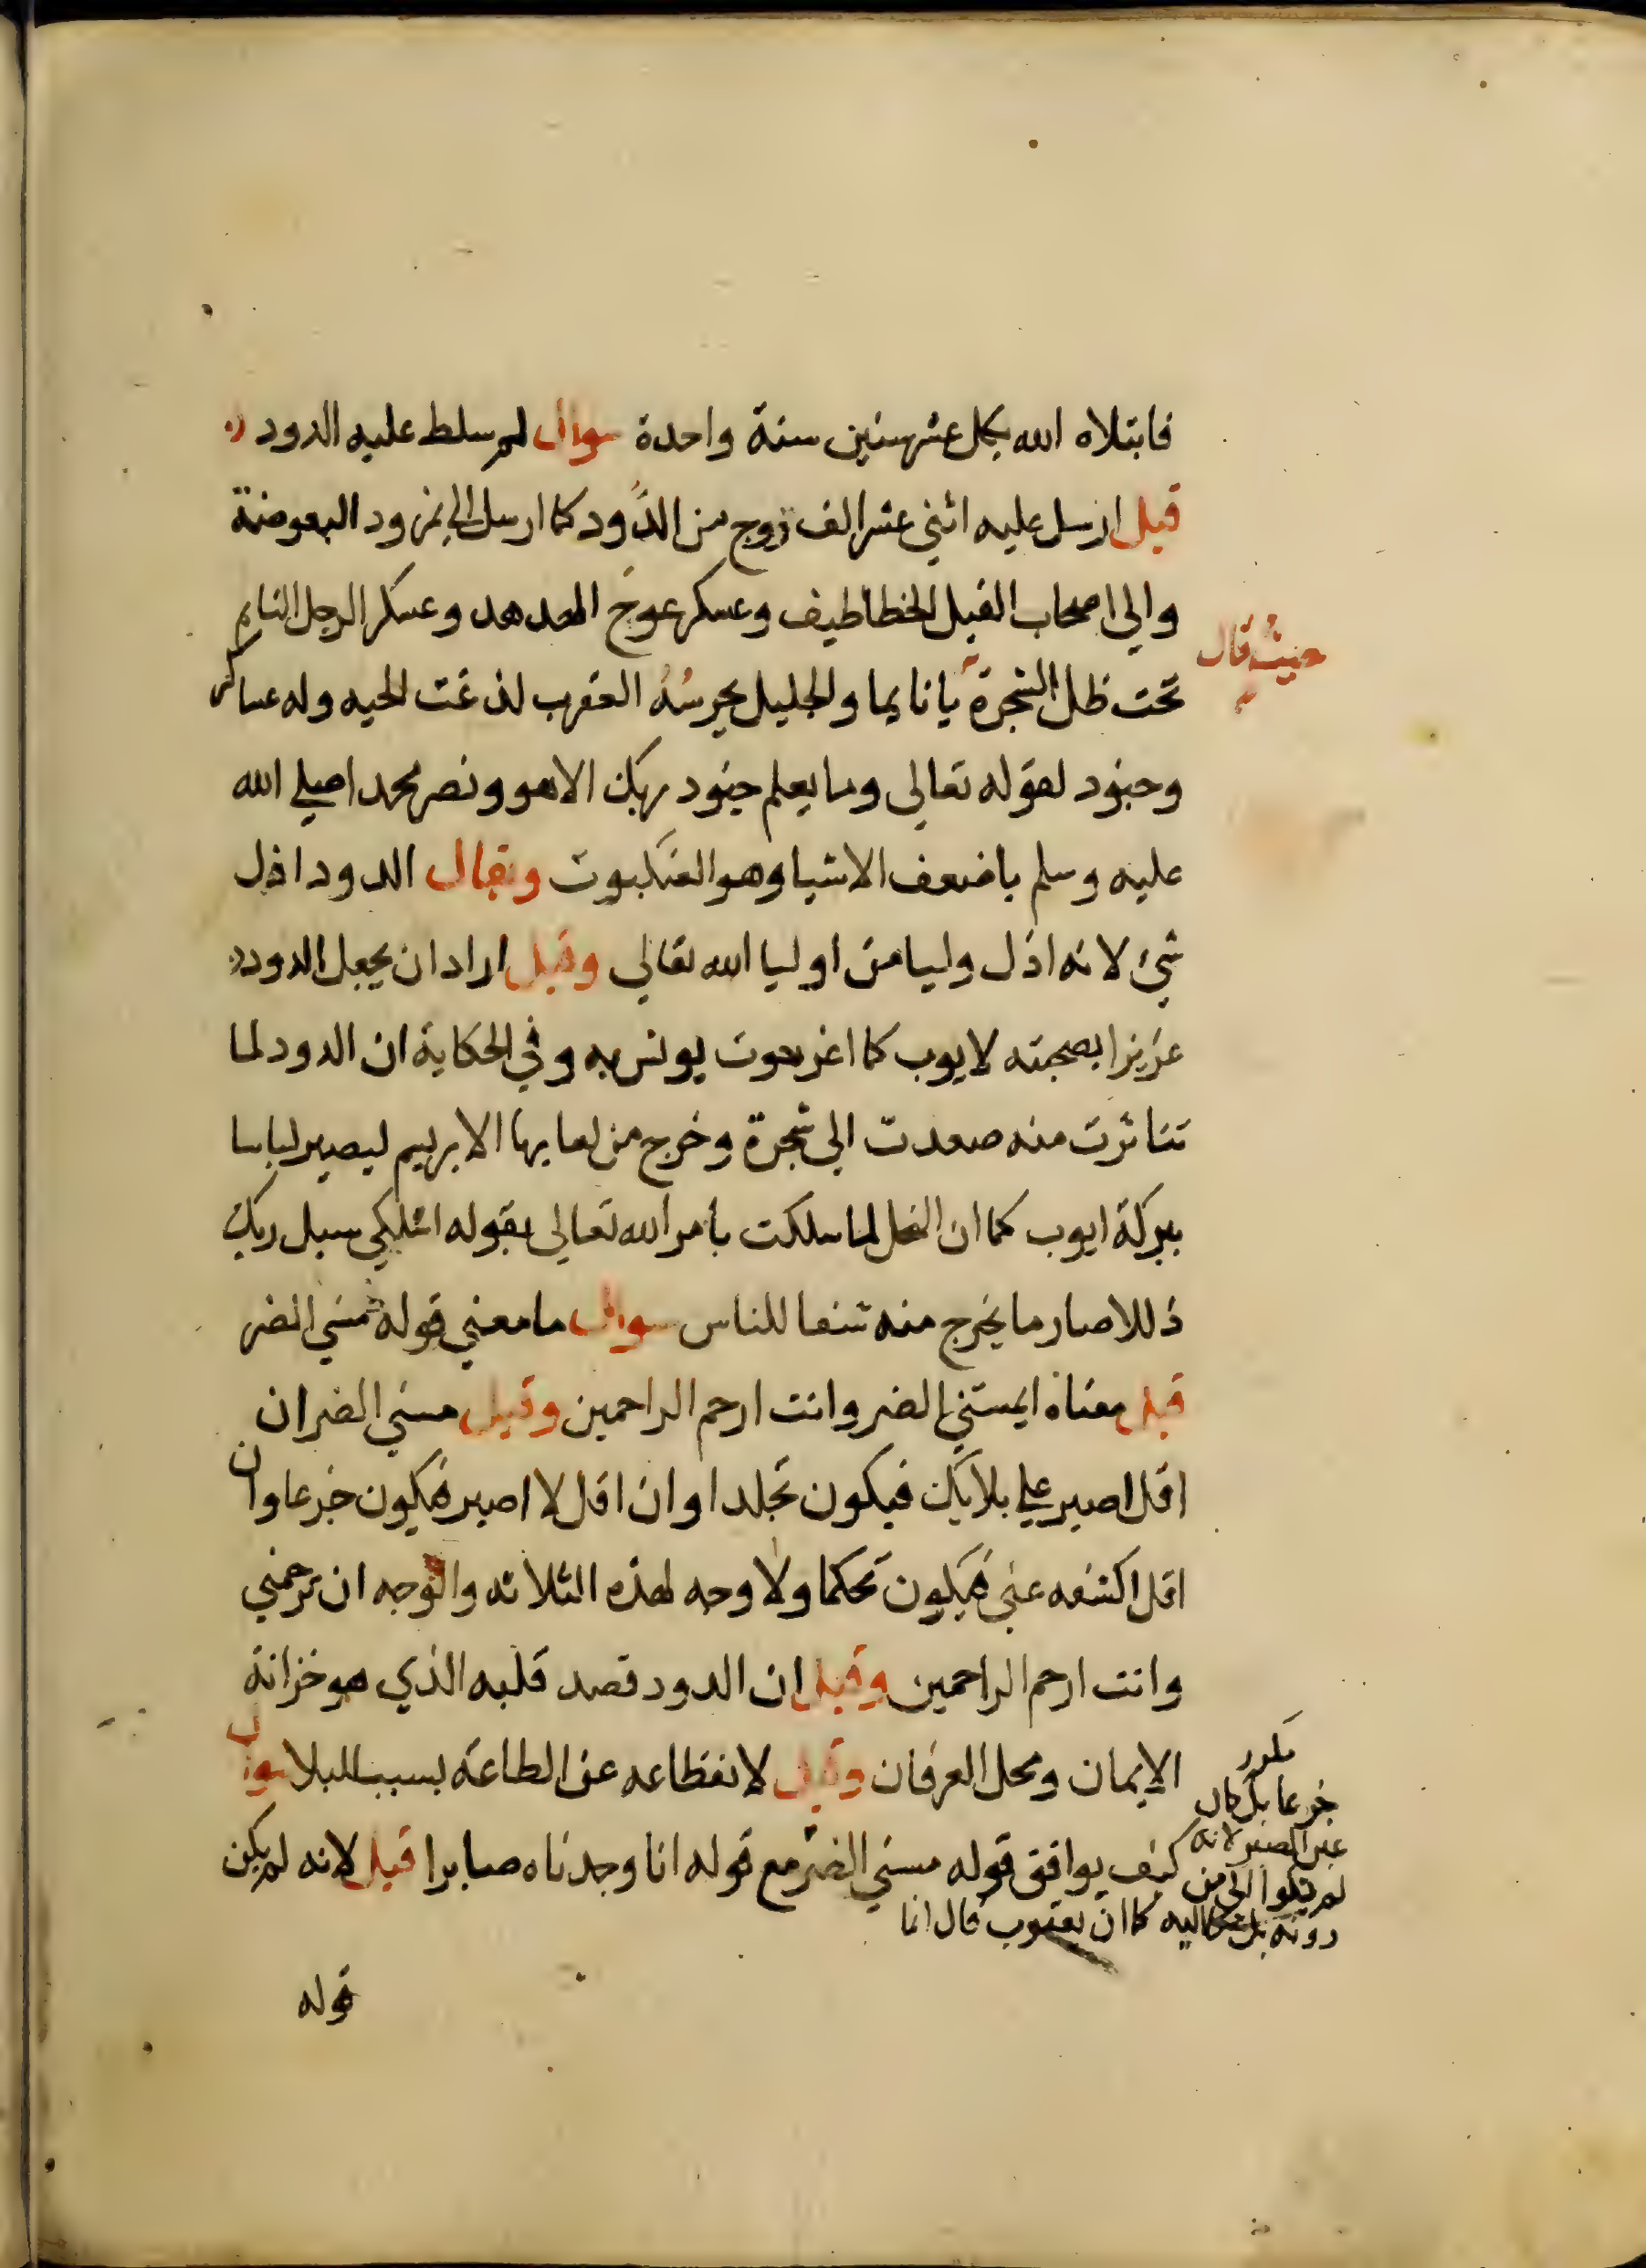 فابتلاه الله بكل عشر سنين سنة واحدة سوال لم سلط عليه الدود
قيل ارسل عليه اثنى عشر الف زوج من الدود كما ارسل الى نمرود البعوضة
والى اصحاب الفيل الخطاطيف وعسكر عوج الهدهد وعسكر الرجل النايم
حيث قال
تحت ظل الشجرة يا نايما والجليل يحرسه العقرب لذغت الحيه وله عساكر
وجنود لقوله تعالى وما يعلم جنود ربك الا هو ونصر محمدا صلى الله
عليه وسلم باضعف الاشيا وهو العنكبوت ويقال الدود اذل
شيء لانه اذل وليا من اوليا الله تعالى وقيل اراد ان يجعل الدود
عزيزا بصحبته لايوب كما اعز حوت يونس به وفي الحكاية ان الدود لما
تناثرت منه صعدت الى شجرة وخرج من لعابها الابريسم ليصير لباسا
ببركة ايوب كما ان النحل لما سلكت بامر الله تعالى بقوله اسلكي سبل ربك
ذللا صار ما يخرج منه شفا للناس سوال ما معنى قوله مسني الضر
قيل معناه ايمسني الضر وانت ارحم الراحمين وقيل مسني الضر ان
اقل اصبر على بلايك فيكون تجلدا وان اقل لا اصبر فيكون جزعا وان
اقل اكشفه عني فيكون تحكما ولا وجه لهذه الثلاثه والوجه ان ترحمني
وانت ارحم الراحمين وقيل ان الدود قصد قلبه الذي هو خزانة
الايمان ومحل العرفان وقيل لانقطاعه عن الطاعة بسبب البلا سوال
كيف يوافق قوله مسني الضر مع قوله انا وجدناه صابرا قيل لانه لم يكن
جزعا بل كان
عين الصبر لانه
لم يشكوا الى من
دونه بل اليه كما ان يعقوب قال انما
قوله